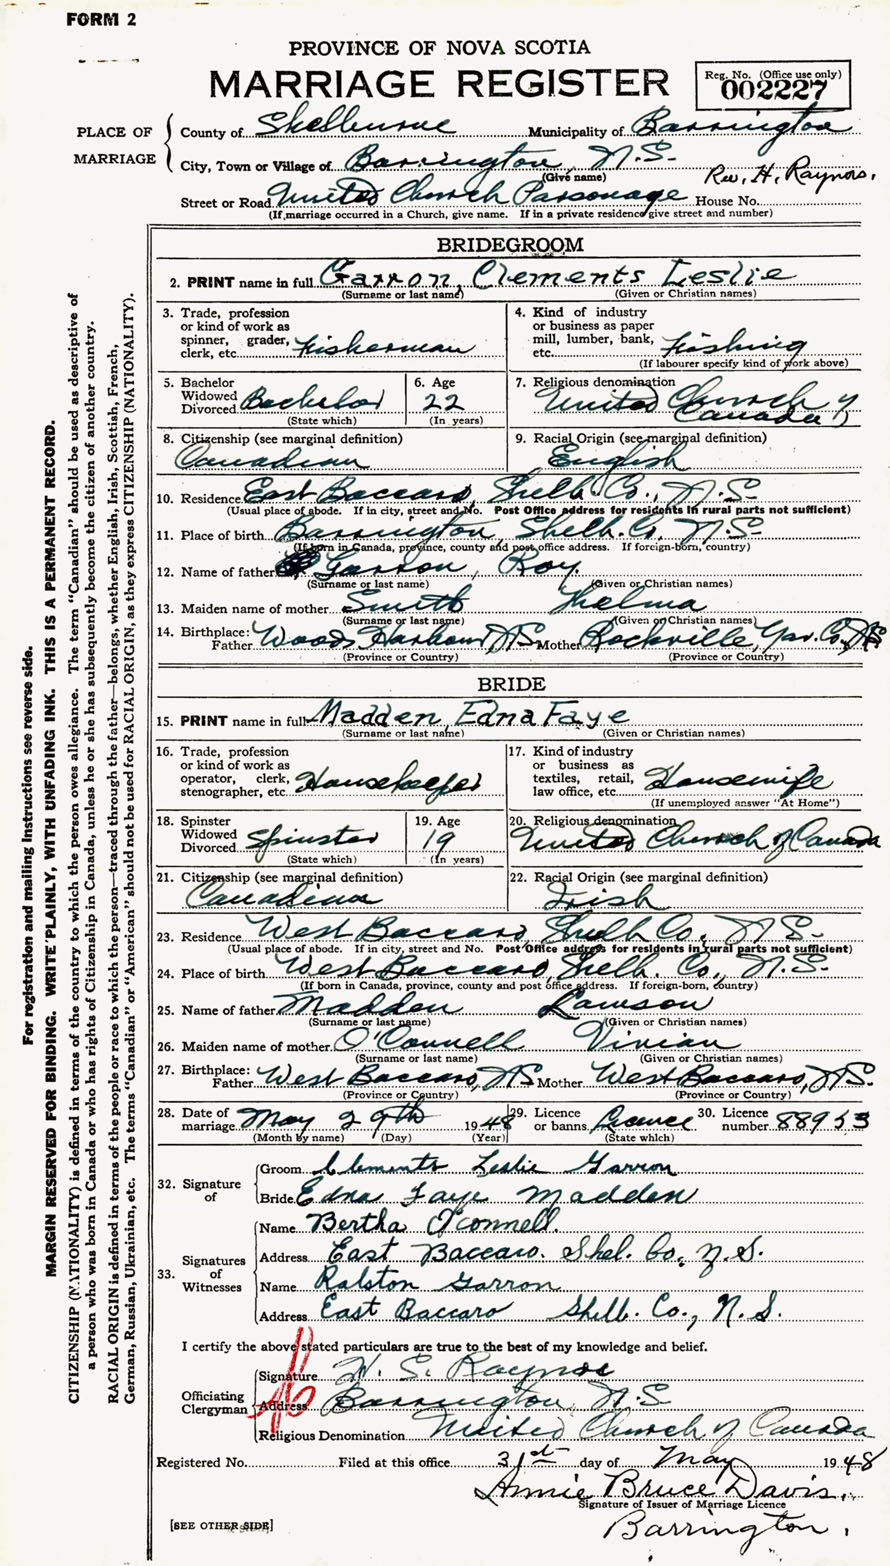 FORM 2
PROVINCE OF NOVA SCOTIA
MARRIAGE REGISTER
Reg. No. (Office use only)
002227
PLACE OF MARRIAGE
County of Shelburne Municipality of Barrington
City, Town or Village of Barrington, N.S.
(Give name) Rev. H. Raynor.
Street or Road United Church Parsonage House No.
(If marriage occurred in a Church, give name. If in a private residence give street and number)
BRIDEGROOM
2. PRINT name in full Garron, Clements Leslie
(Surname or last name) (Given or Christian names)
3. Trade, profession or kind of work as spinner, grader, clerk, etc. Fisherman
4. Kind of industry or business as paper mill, lumber, bank, etc. Fishing
(If labourer specify kind of work above)
5. Bachelor Widowed Divorced Bachelor
(State which)
6. Age 22
(In years)
7. Religious denomination United Church of Canada
8. Citizenship (see marginal definition) Canadian
9. Racial Origin (see marginal definition) English
10. Residence East Baccaro, Shelb. Co., N.S.
(Usual place of abode. If in city, street and No. Post Office address for residents in rural parts not sufficient)
11. Place of birth Barrington, Shelb. Co. N.S.
(If born in Canada, province, county and post office address. If foreign-born, country)
12. Name of father Garron, Roy
(Surname or last name) (Given or Christian names)
13. Maiden name of mother Smith Thelma
(Surname or last name) (Given or Christian names)
14. Birthplace: Father Woods Harbour, N.S. Mother Rockville, Yar. Co. N.S.
(Province or Country) (Province or Country)
BRIDE
15. PRINT name in full Madden, Edna Faye
(Surname or last name) (Given or Christian names)
16. Trade, profession or kind of work as operator, clerk, stenographer, etc. Housekeeper
17. Kind of industry or business as textiles, retail, law office, etc. Housewife
(If unemployed answer "At Home")
18. Spinster Widowed Divorced Spinster
(State which)
19. Age 19
(In years)
20. Religious denomination United Church of Canada
21. Citizenship (see marginal definition) Canadian
22. Racial Origin (see marginal definition) Irish
23. Residence West Baccaro, Shelb Co., N.S.
(Usual place of abode. If in city, street and No. Post Office address for residents in rural parts not sufficient)
24. Place of birth West Baccaro, Shelb. Co., N.S.
(If born in Canada, province, county and post office address. If foreign-born, country)
25. Name of father Madden Lawson
(Surname or last name) (Given or Christian names)
26. Maiden name of mother O'Connell Vivian
(Surname or last name) (Given or Christian names)
27. Birthplace: Father West Baccaro, N.S. Mother West Baccaro, N.S.
(Province or Country) (Province or Country)
28. Date of marriage May 29th 1948
(Month by name) (Day) (Year)
29. Licence or banns Licence
(State which)
30. Licence number 88953
32. Signature of
Groom Clements Leslie Garron
Bride Edna Faye Madden
33. Signatures of Witnesses
Name Bertha O'Connell.
Address East Baccaro. Shel. Co., N.S.
Name Ralston Garron
Address East Baccaro Shelb. Co., N.S.
I certify the above stated particulars are true to the best of my knowledge and belief.
Officiating Clergyman
Signature H. S. Raynor
Address Barrington, N.S.
Religious Denomination United Church of Canada
Registered No. Filed at this office 31st day of May 1948
Annie Bruce Davis.
Signature of Issuer of Marriage Licence
Barrington.
[SEE OTHER SIDE]
For registration and mailing instructions see reverse side.
MARGIN RESERVED FOR BINDING. WRITE PLAINLY, WITH UNFADING INK. THIS IS A PERMANENT RECORD.
CITIZENSHIP (NATIONALITY) is defined in terms of the country to which the person owes allegiance. The term "Canadian" should be used as descriptive of
a person who was born in Canada or who has rights of Citizenship in Canada, unless he or she has subsequently become the citizen of another country.
RACIAL ORIGIN is defined in terms of the people or race to which the person—traced through the father—belongs, whether English, Irish, Scottish, French,
German, Russian, Ukrainian, etc. The terms "Canadian" or "American" should not be used for RACIAL ORIGIN, as they express CITIZENSHIP (NATIONALITY).